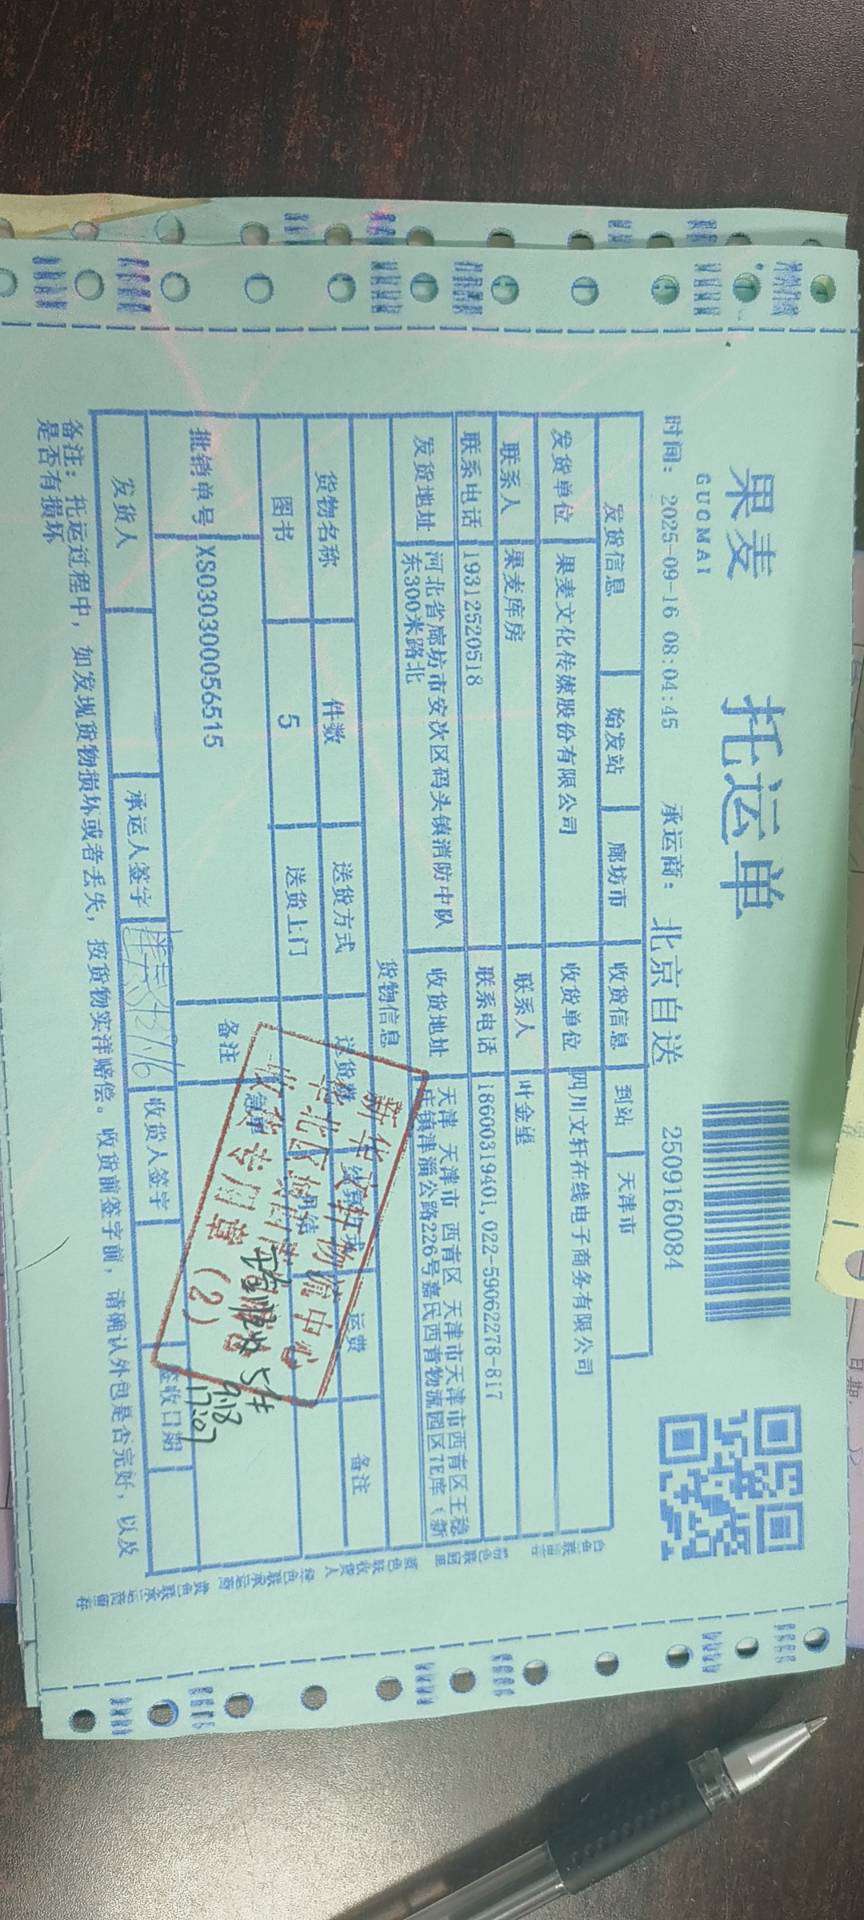 果麦
GUOMAI
托运单
时间: 2025-09-16 08:04:45 承运商: 北京自送 2509160084
发货信息 始发站 廊坊市 收货信息 到站 天津市
发货单位 果麦文化传媒股份有限公司 收货单位 四川文轩在线电子商务有限公司
联系人 果麦库房 联系人 叶金星
联系电话 19312520518 联系电话 18600319401,022-59062278-817
发货地址 河北省廊坊市安次区码头镇消防中队东300米路北 收货地址 天津 天津市 西青区 天津市天津市西青区王稳庄镇津淄公路226号嘉民西青物流园区7E库(新
货物信息
货物名称 件数 送货方式 送货费 运费 备注
图书 5 送货上门 月结
批销单号 XS030300056515 备注 急单
发货人 承运人签字 收货人签字 签收日期
备注: 托运过程中, 如发现货物损坏或者丢失, 按货物实洋赔偿。收货前签字前, 请确认外包是否完好, 以及
是否有损坏
新华文轩物流中心
收货专用章
(2)
5件
9.18
17:07